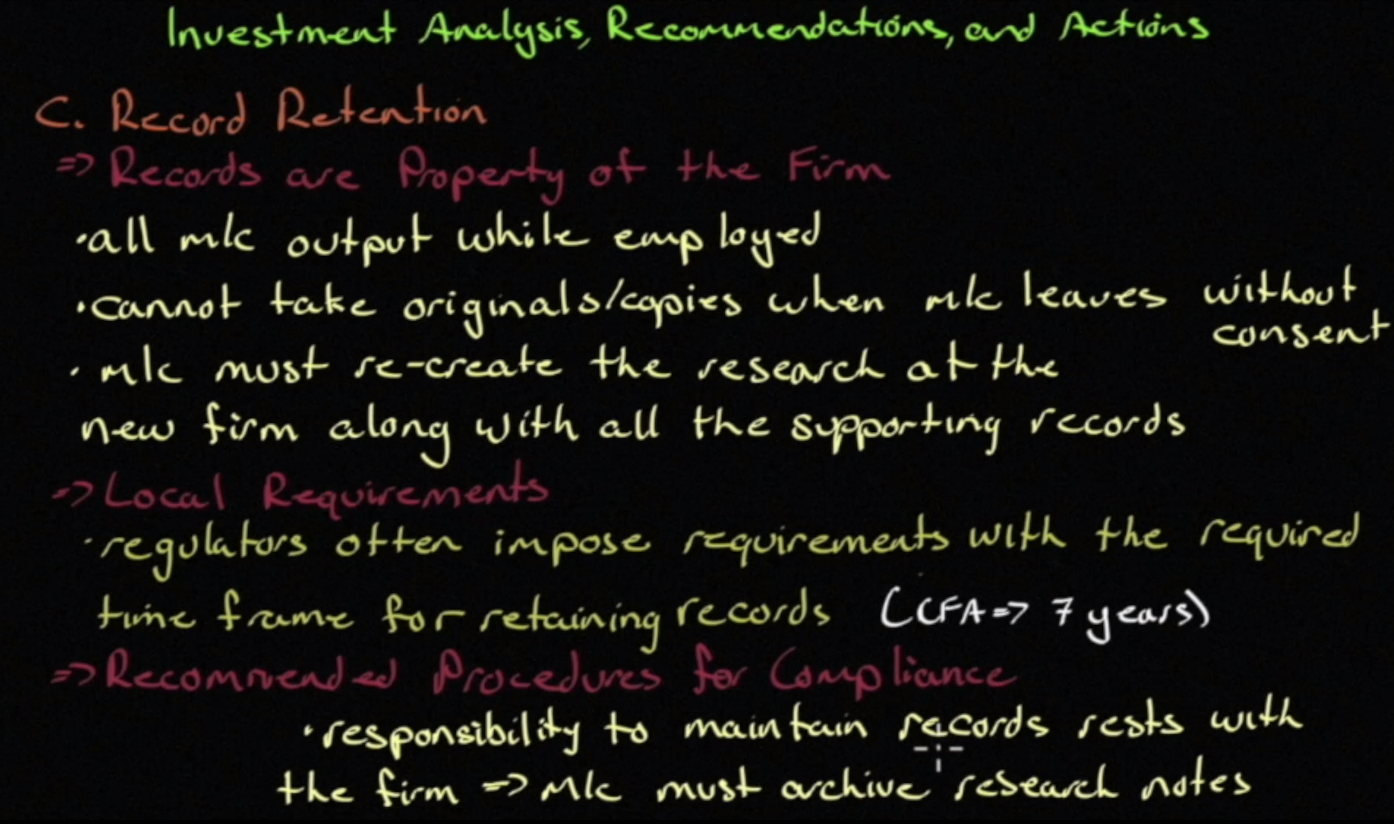 Investment Analysis, Recommendations, and Actions
C. Record Retention
=> Records are Property of the Firm
·all m/c output while employed
·cannot take originals/copies when m/c leaves without
consent
· m/c must re-create the research at the
new firm along with all the supporting records
=> Local Requirements
·regulators often impose requirements with the required
time frame for retaining records (CFA => 7 years)
=> Recommended Procedures for Compliance
·responsibility to maintain records rests with
the firm => M/c must archive research notes